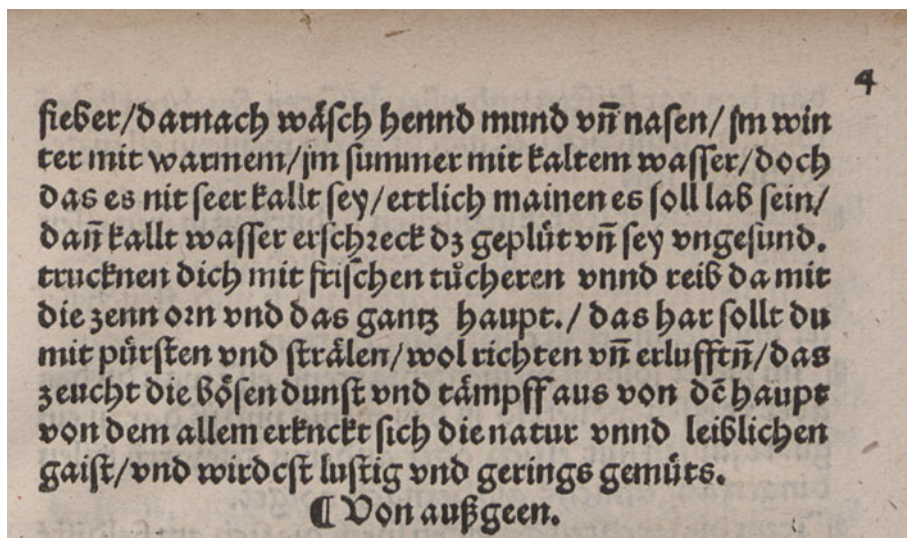 4
fieber/darnach wäsch hennd mund vn̄ nasen/ jm win
ter mit warmem/jm summer mit kaltem wasser/doch
das es nit seer kallt sey/ettlich mainen es soll lab sein/
dan̄ kallt wasser erschreck dz geplüt vn̄ sey vngesund.
trucknen dich mit frischen tůcheren vnnd reib da mit
die zenn orn vnd das gantz haupt./ das har sollt du
mit pürsten vnd strälen/wol richten vn̄ erlufftn̄/das
zeucht die bösen dunst vnd tämpff aus von dē haupt
von dem allem erknckt sich die natur vnnd leiblichen
gaist/vnd wirdcst lustig vnd gerings gemüts.
¶ Von außgeen.